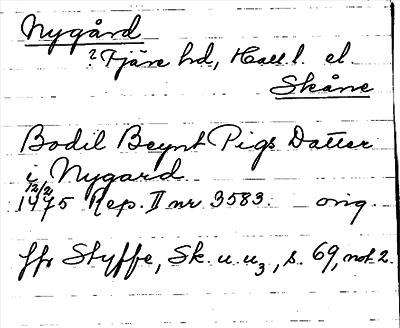 Nygård
? Fjäre hd, Hall. l. el.
Skåne
Bodil Beynt Pigs Datter
i Nygard
12/2
1475 Rep. II nr 3583. orig.
jfr Styffe, Sk. u. u3, s. 69, not 2.